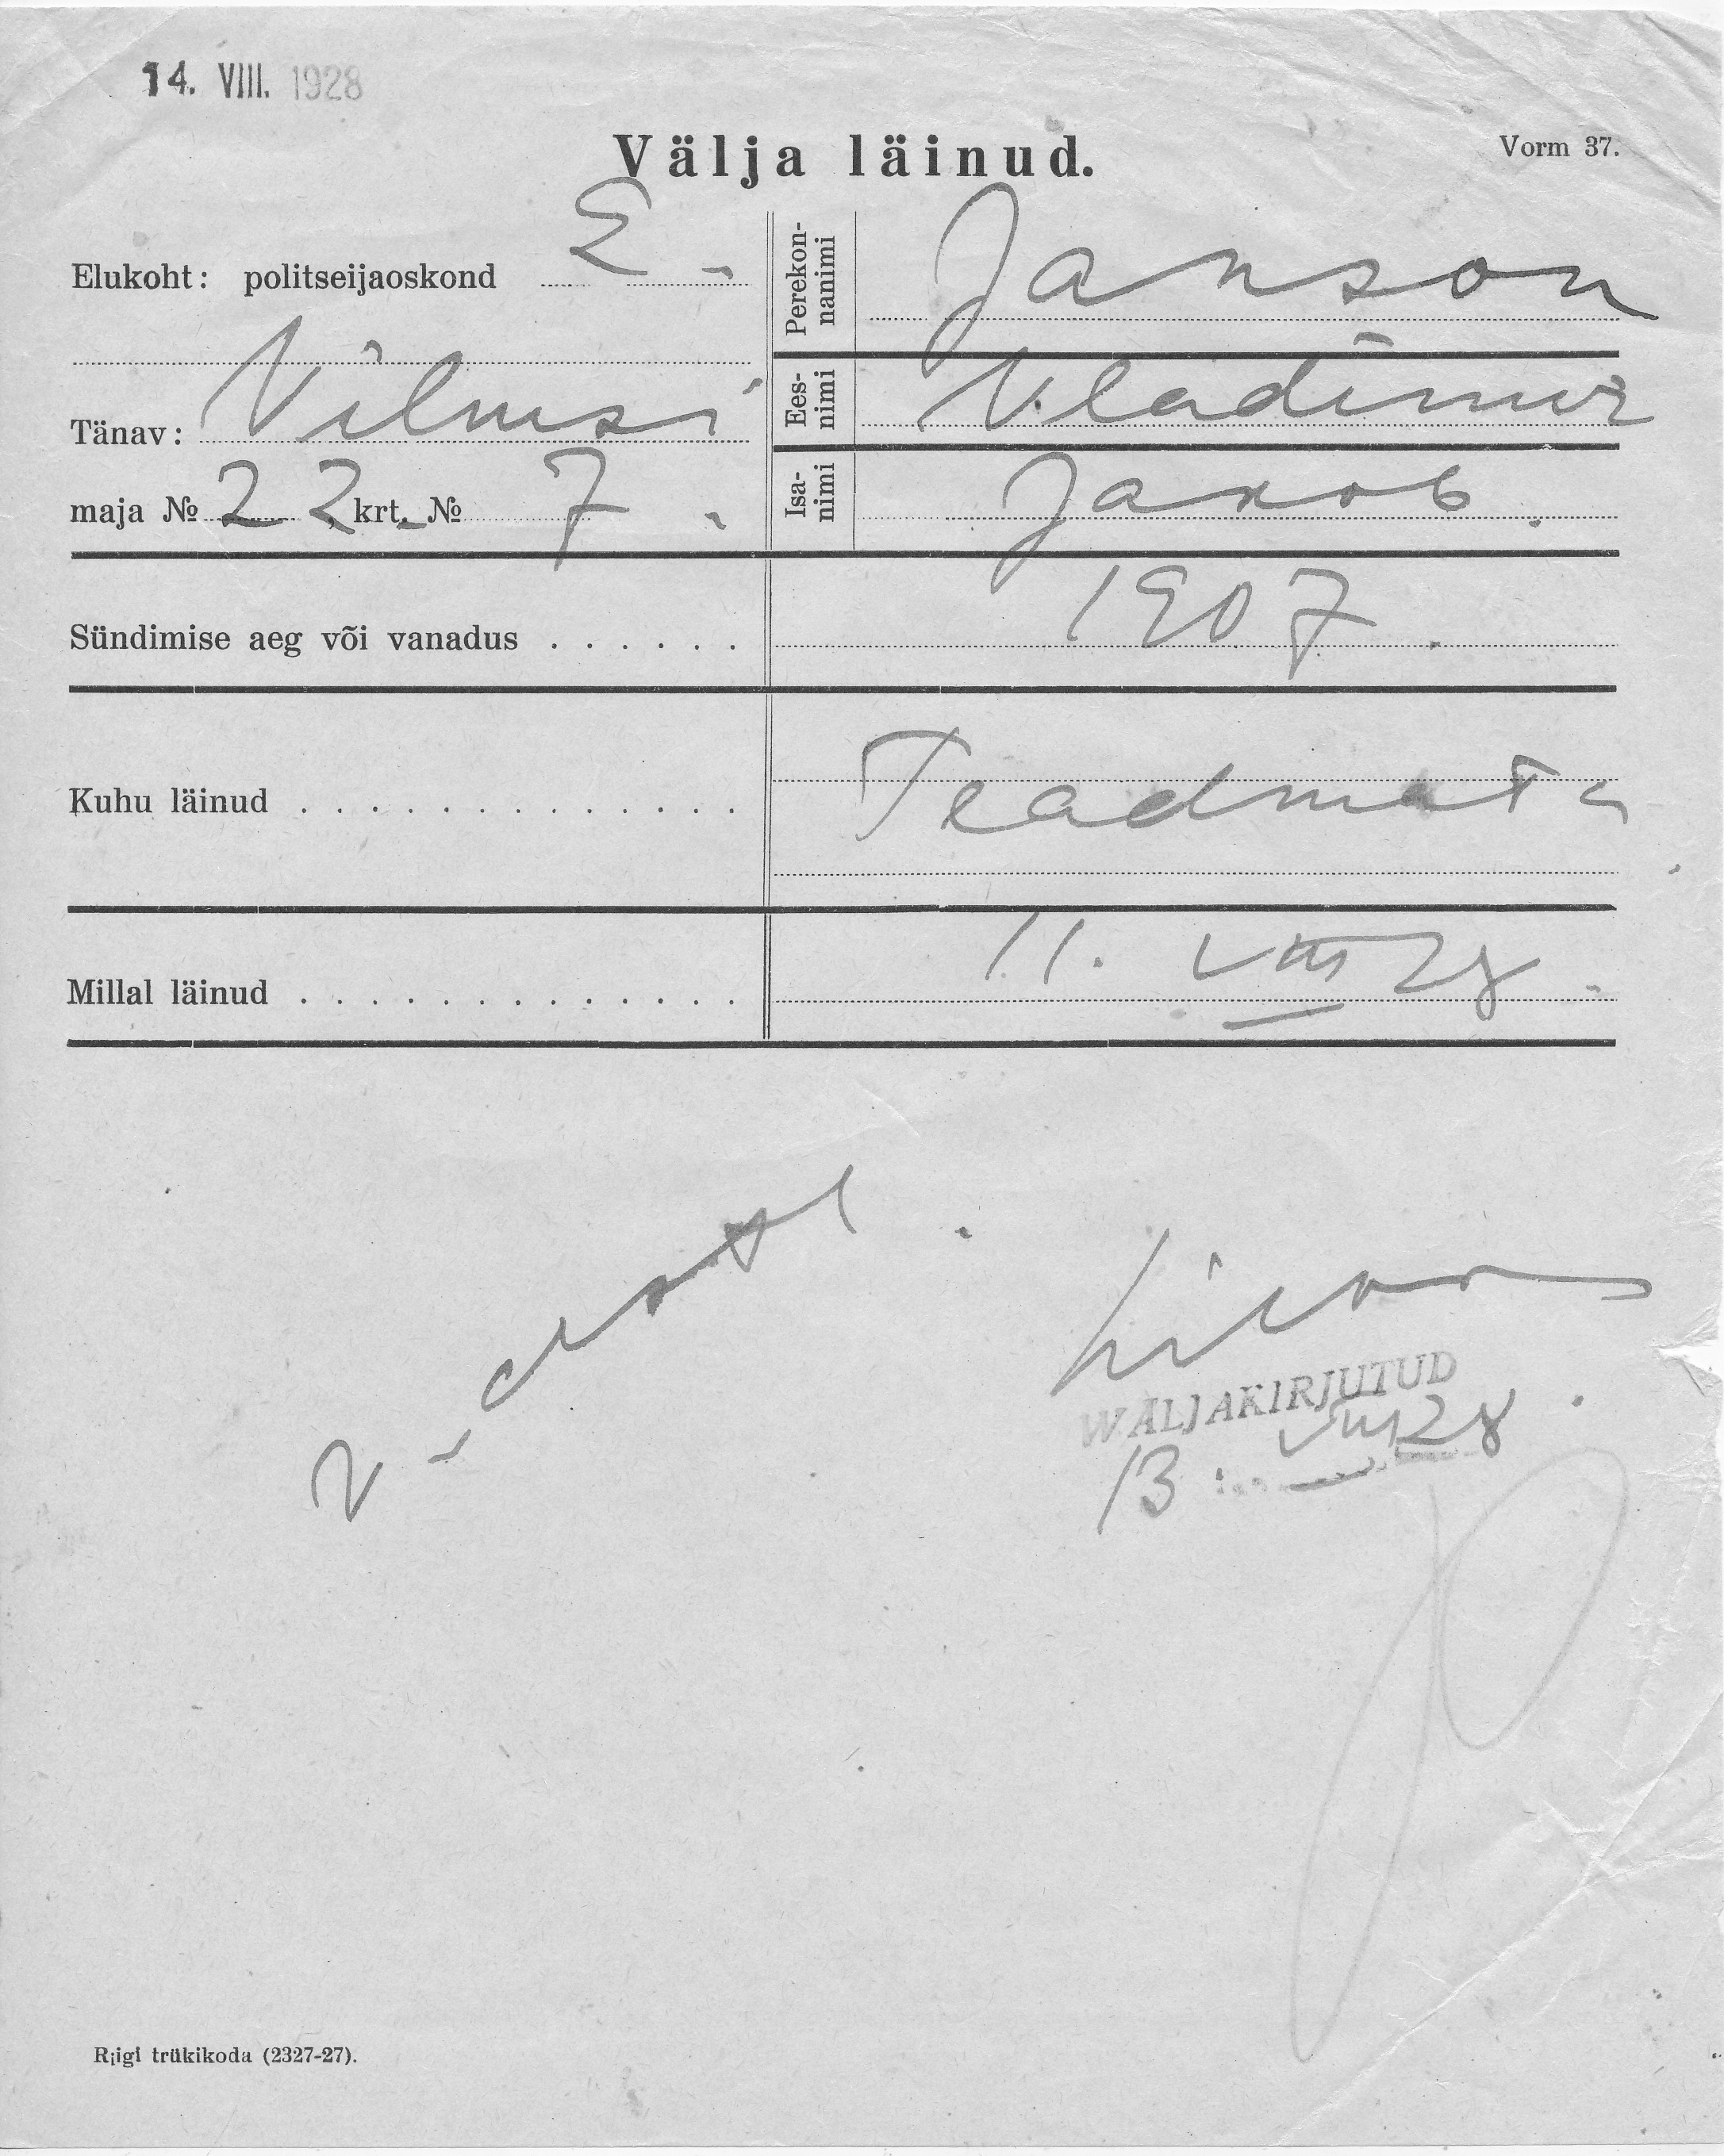 14. VIII. 1928
Välja läinud.
Vorm 37.
Elukoht: politseijaoskond
Tänav: Vilmsi
maja № 22 krt. № 7.
Perekonnanimi Janson
Eesnimi Vladimir
Isanimi Jakob.
Sündimise aeg või vanadus . . . . . . 1907.
Kuhu läinud . . . . . . . . . . . . . . Teadmata
Millal läinud . . . . . . . . . . . . . . 11. VIII 28.
WÄLJAKIRJUTUD
13. VIII 28.
Riigi trükikoda (2327-27).